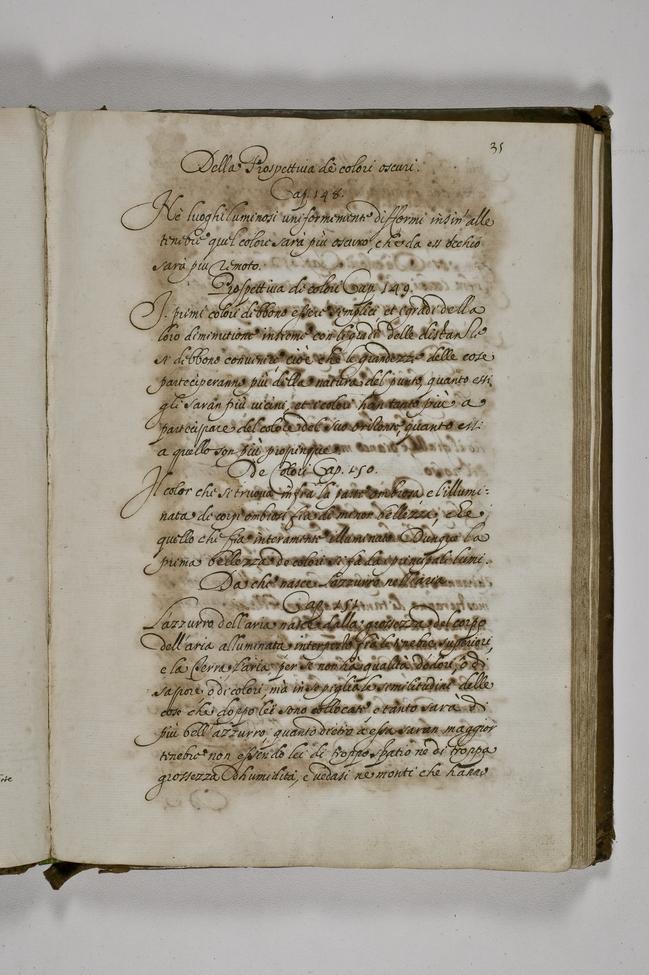 35
Della Prospettiva de colori oscuri.
Cap. 148.
Ne luoghi luminosi uniformemente difformi insin' alle
tenebre quel colore sarà più oscuro, che da esso occhio
sara piu remoto.
Prospettiva de colori Cap. 149.
I primi colori debbono essere semplici et i gradi della
loro diminitione insieme con li gradi delle distantie
si debbono convenire cioè che le grandezze delle cose
parteciperanno più della natura del punto, quanto essi
gli saran più vicini, et i colori han tanto più a
participare del colore del suo orizonte, quanto essi
a quello son più propinqui
De Colori Cap. 150.
Il color che si truova infra la parte ombrosa e l'illumi=
nata de corpi ombrosi fia di minor bellezza, che
quello che fia interamente illuminato Dunque la
prima bellezza de colori si fa da i principali lumi.
Da che nasce l'azzurro nell'aria
Cap. 151.
L'azzurro dell'aria nasce dalla grossezza del corpo
dell'aria alluminata interposto fra le tenebre superiori,
e la Terra L'aria per se non ha qualità d'odori, ò di
sapore, ò di colori, mà in se piglia le similitudini delle
cose che doppo lei sono collocate e tanto sarà di
più bell'azzurro quanto dietro à essa saran maggior
tenebre non essendo lei di troppo spatio nè di troppa
grossezza d'humidità, e vedasi ne monti che hanno